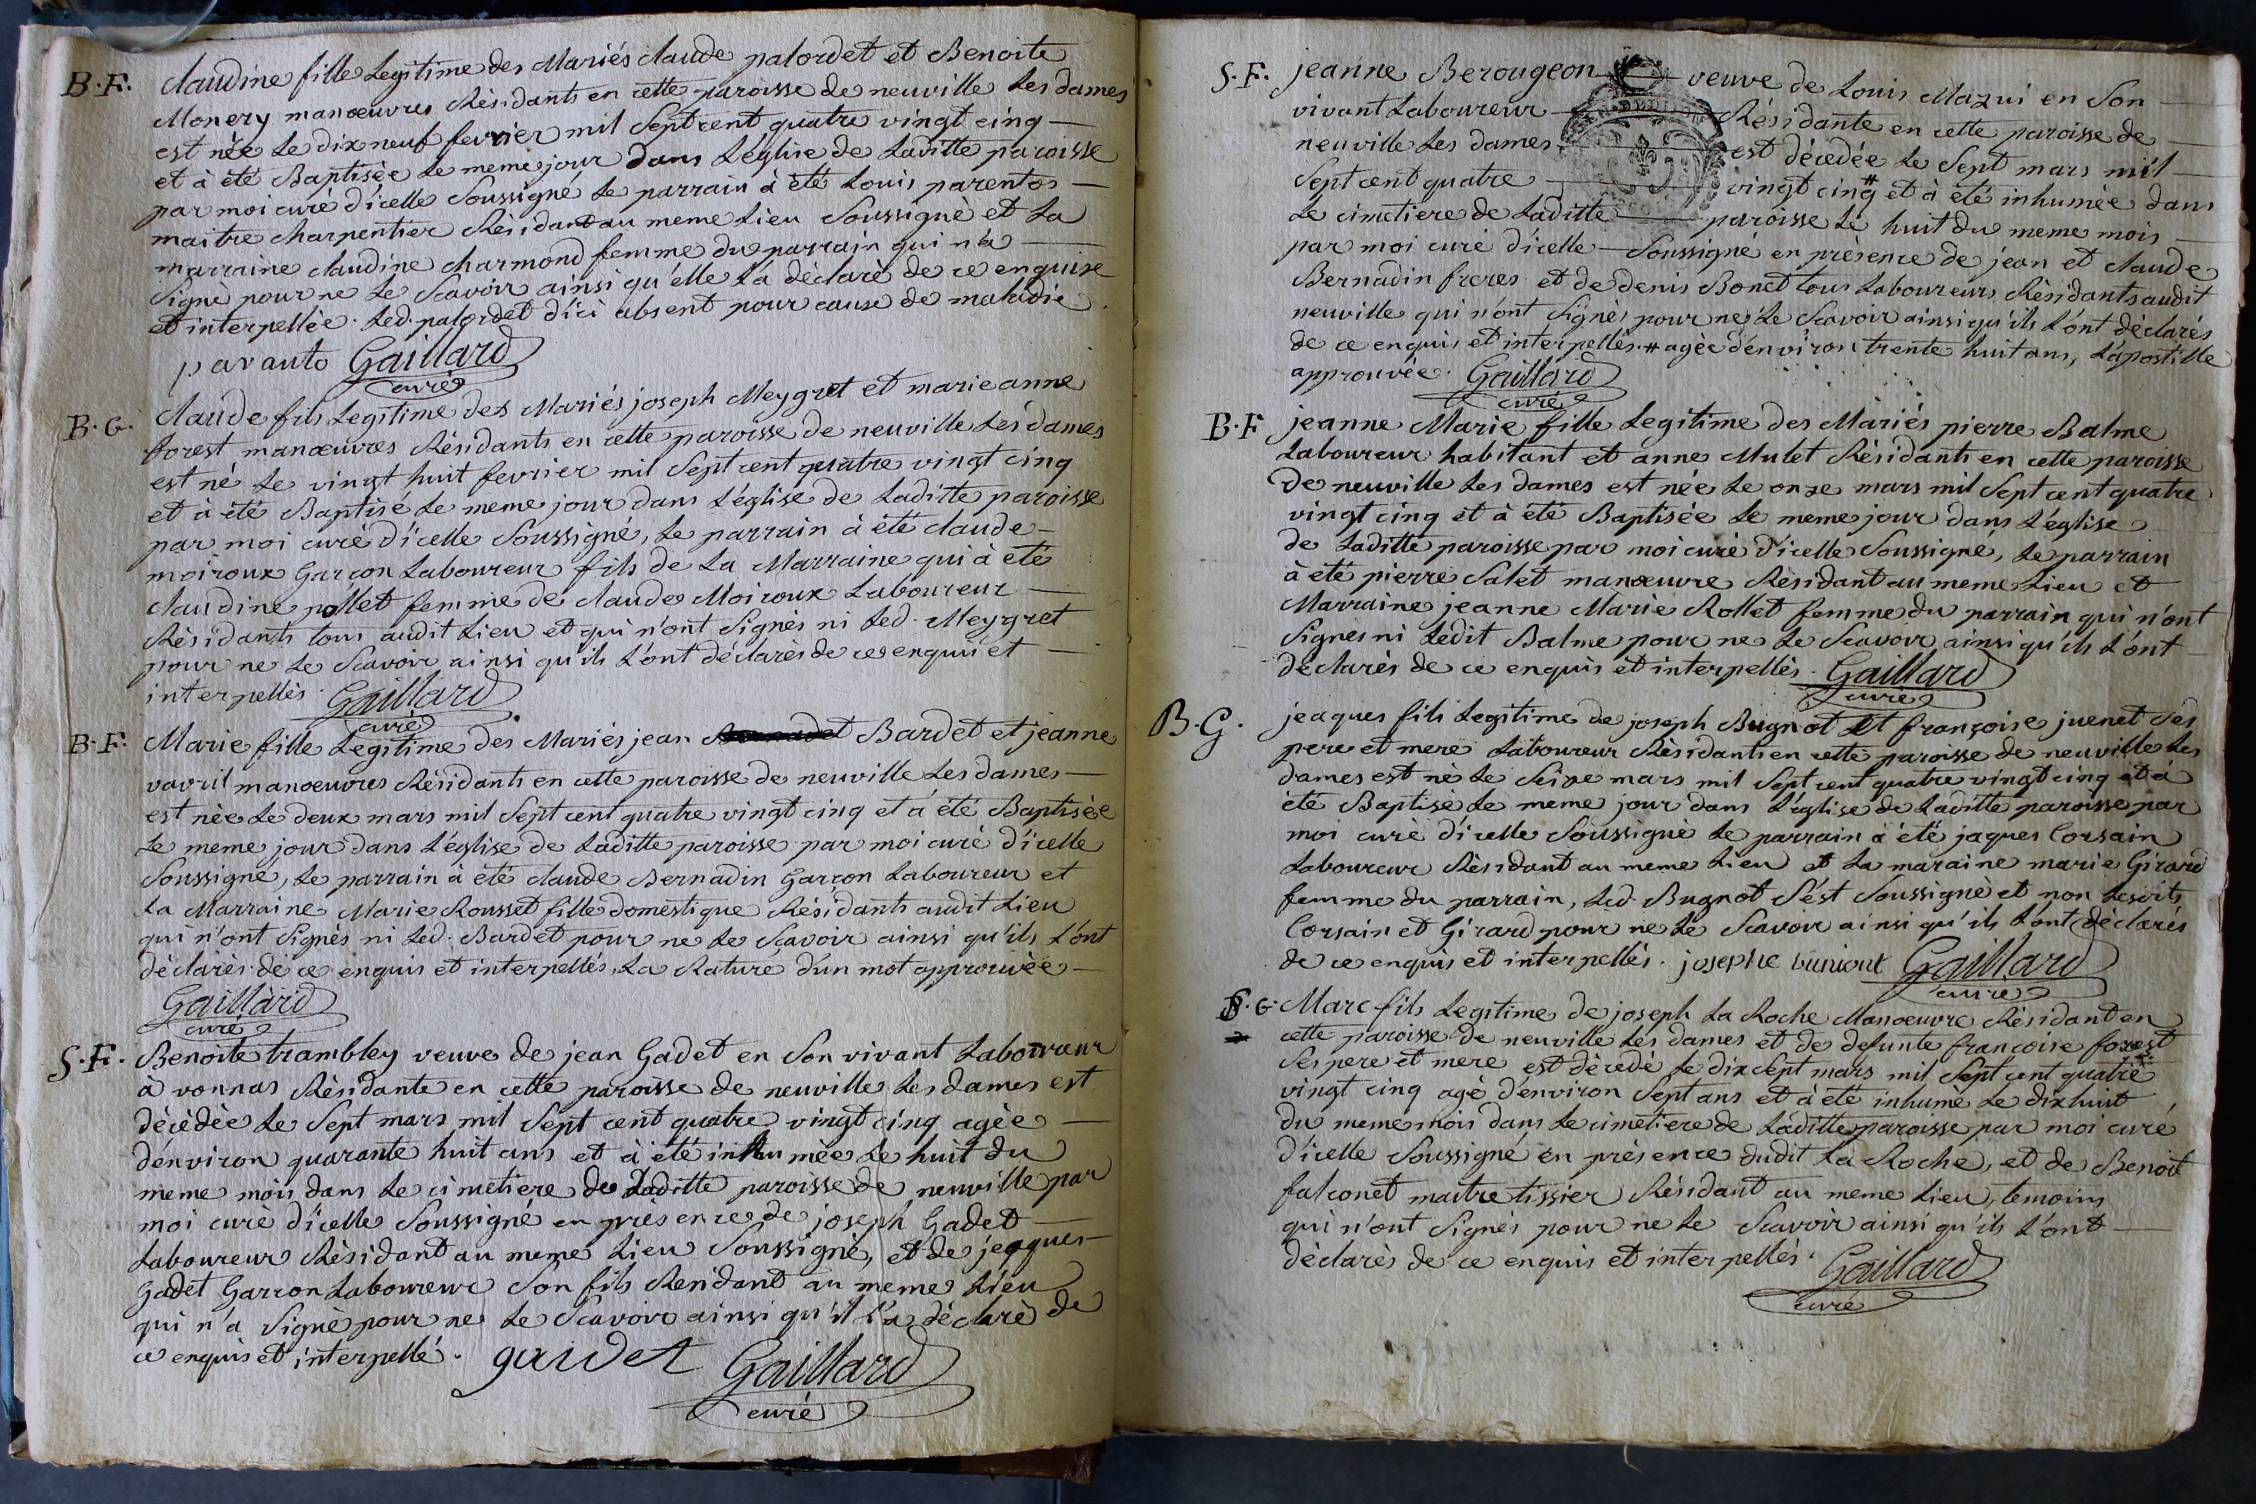 B.F. Claudine fille Legitime des Mariés claude palordet et Benoite
Monery manœuvres Résidants en cette paroisse de neuville Les dames
est née Le dix neuf fevrier mil Sept cent quatre vingt cinq
et à été Baptisée Le meme jour dans L'église de Laditte paroisse
par moi curé d'icelle Soussigné Le parrain à été Louis parentos
maitre charpentier Résidant au meme Lieu Soussigné et La
marraine claudine charmond femme du parrain qui n'a
Signé pour ne Le Scavoir ainsi qu'elle L'a déclaré de ce enquise
et interpellée. Led. palordet d'ici absent pour cause de maladie.
paranto Gaillard
curé
B.G. Claude fils Legitime des Mariés joseph Meygret et marie anne
forest manœuvres Résidants en cette paroisse de neuville Les dames
est né Le vingt huit fevrier mil Sept cent quatre vingt cinq
et à été Baptisé Le meme jour dans L'église de Laditte paroisse
par moi curé d'icelle Soussigné, Le parrain à été claude
moiroux Garçon Laboureur fils de La Marraine qui à été
claudine pollet femme de claude Moiroux Laboureur
Résidants tous audit Lieu et qui n'ont Signés ni Led. Meygret
pour ne Le Scavoir ainsi qu'ils L'ont déclarés de ce enquis et
interpellés. Gaillard
curé
B.F. Marie fille Legitime des Mariés jean Bardet et jeanne
vavril manœuvres Résidants en cette paroisse de neuville Les dames
est née Le deux mars mil Sept cent quatre vingt cinq et à été Baptisée
Le meme jour dans L'église de Laditte paroisse par moi curé d'icelle
Soussigné, Le parrain à été claude Bernadin Garçon Laboureur et
La Marraine Marie Rousset fille domestique Résidants audit Lieu
qui n'ont Signés ni Led. Bardet pour ne Le Scavoir ainsi qu'ils L'ont
déclarés de ce enquis et interpellés, La Rature d'un mot approuvée
Gaillard
curé
S.F. Benoite trambley veuve de jean Gadet en Son vivant Laboureur
à vonnas Résidante en cette paroisse de neuville Les dames est
décédée Le Sept mars mil Sept cent quatre vingt cinq agée
d'environ quarante huit ans et à été inhumée Le huit du
meme mois dans Le cimetiere de Laditte paroisse de neuville par
moi curé d'icelle Soussigné en présence de joseph Gadet
Laboureur Résidant au meme Lieu Soussigné, et de jeaques
Gadet Garçon Laboureur Son fils Residant au meme Lieu
qui n'a Signé pour ne Le Scavoir ainsi qu'il L'a déclaré de
ce enquis et interpellé. gaidet Gaillard
curé
S.F. jeanne Berougeon veuve de Louis Mazui en Son
vivant Laboureur Résidante en cette paroisse de
neuville Les dames est décedée Le Sept mars mil
Sept cent quatre vingt cinq # et à été inhumée dans
Le cimetiere de Laditte paroisse Le huit du meme mois
par moi curé d'icelle Soussigné en présence de jean et claude
Bernadin freres et de denis Bonet tous Laboureurs Résidants audit
neuville qui n'ont Signés pour ne Le Scavoir ainsi qu'ils L'ont déclarés
de ce enquis et interpellés. # agée d'environ trente huit ans, L'apostille
approuvée. Gaillard
curé
B.F jeanne Marie fille Legitime des Mariés pierre Balme
Laboureur habitant et anne Mulet Résidants en cette paroisse
De neuville Les dames est née Le onze mars mil Sept cent quatre
vingt cinq et à été Baptisée Le meme jour dans L'église
de Laditte paroisse par moi curé d'icelle Soussigné, Le parrain
à été pierre Salet manœuvre Résidant au meme Lieu et
Marraine jeanne Marie Rollet femme du parrain qui n'ont
Signés ni Ledit Balme pour ne Le Scavoir ainsi qu'ils L'ont
déclarés de ce enquis et interpellés. Gaillard
curé
B.G. jeaques fils Legitime de joseph Bugnot et françoise juenet Ses
pere et mere Laboureur Résidants en cette paroisse de neuville Les
dames est né Le Seize mars mil Sept cent quatre vingt cinq et à
été Baptisé Le meme jour dans L'église de Laditte paroisse par
moi curé d'icelle Soussigné Le parrain à été jaques Corsain
Laboureur Résidant au meme Lieu et La maraine marie Girard
femme du parrain, Led. Bugnot S'ést Soussigné et non Lesdits
Corsain et Girard pour ne Le Scavoir ainsi qu'ils L'ont déclarés
de ce enquis et interpellés. josephe Gaillard
curé
S.G. Marc fils Legitime de joseph La Roche Manoeuvre Résidant en
cette paroisse de neuville Les dames et de defunte françoise forest
Ses pere et mere est décedé Le dix Sept mars mil Sept cent quatre
vingt cinq agé d'environ Sept ans et à été inhumé Le dix huit
du meme mois dans Le cimetiere de Laditte paroisse par moi curé
d'icelle Soussigné en présence dudit La Roche, et de Benoit
falconet maitre tissier Résidant au meme Lieu, temoins
qui n'ont Signés pour ne Le Scavoir ainsi qu'ils L'ont
déclarés de ce enquis et interpellés. Gaillard
curé